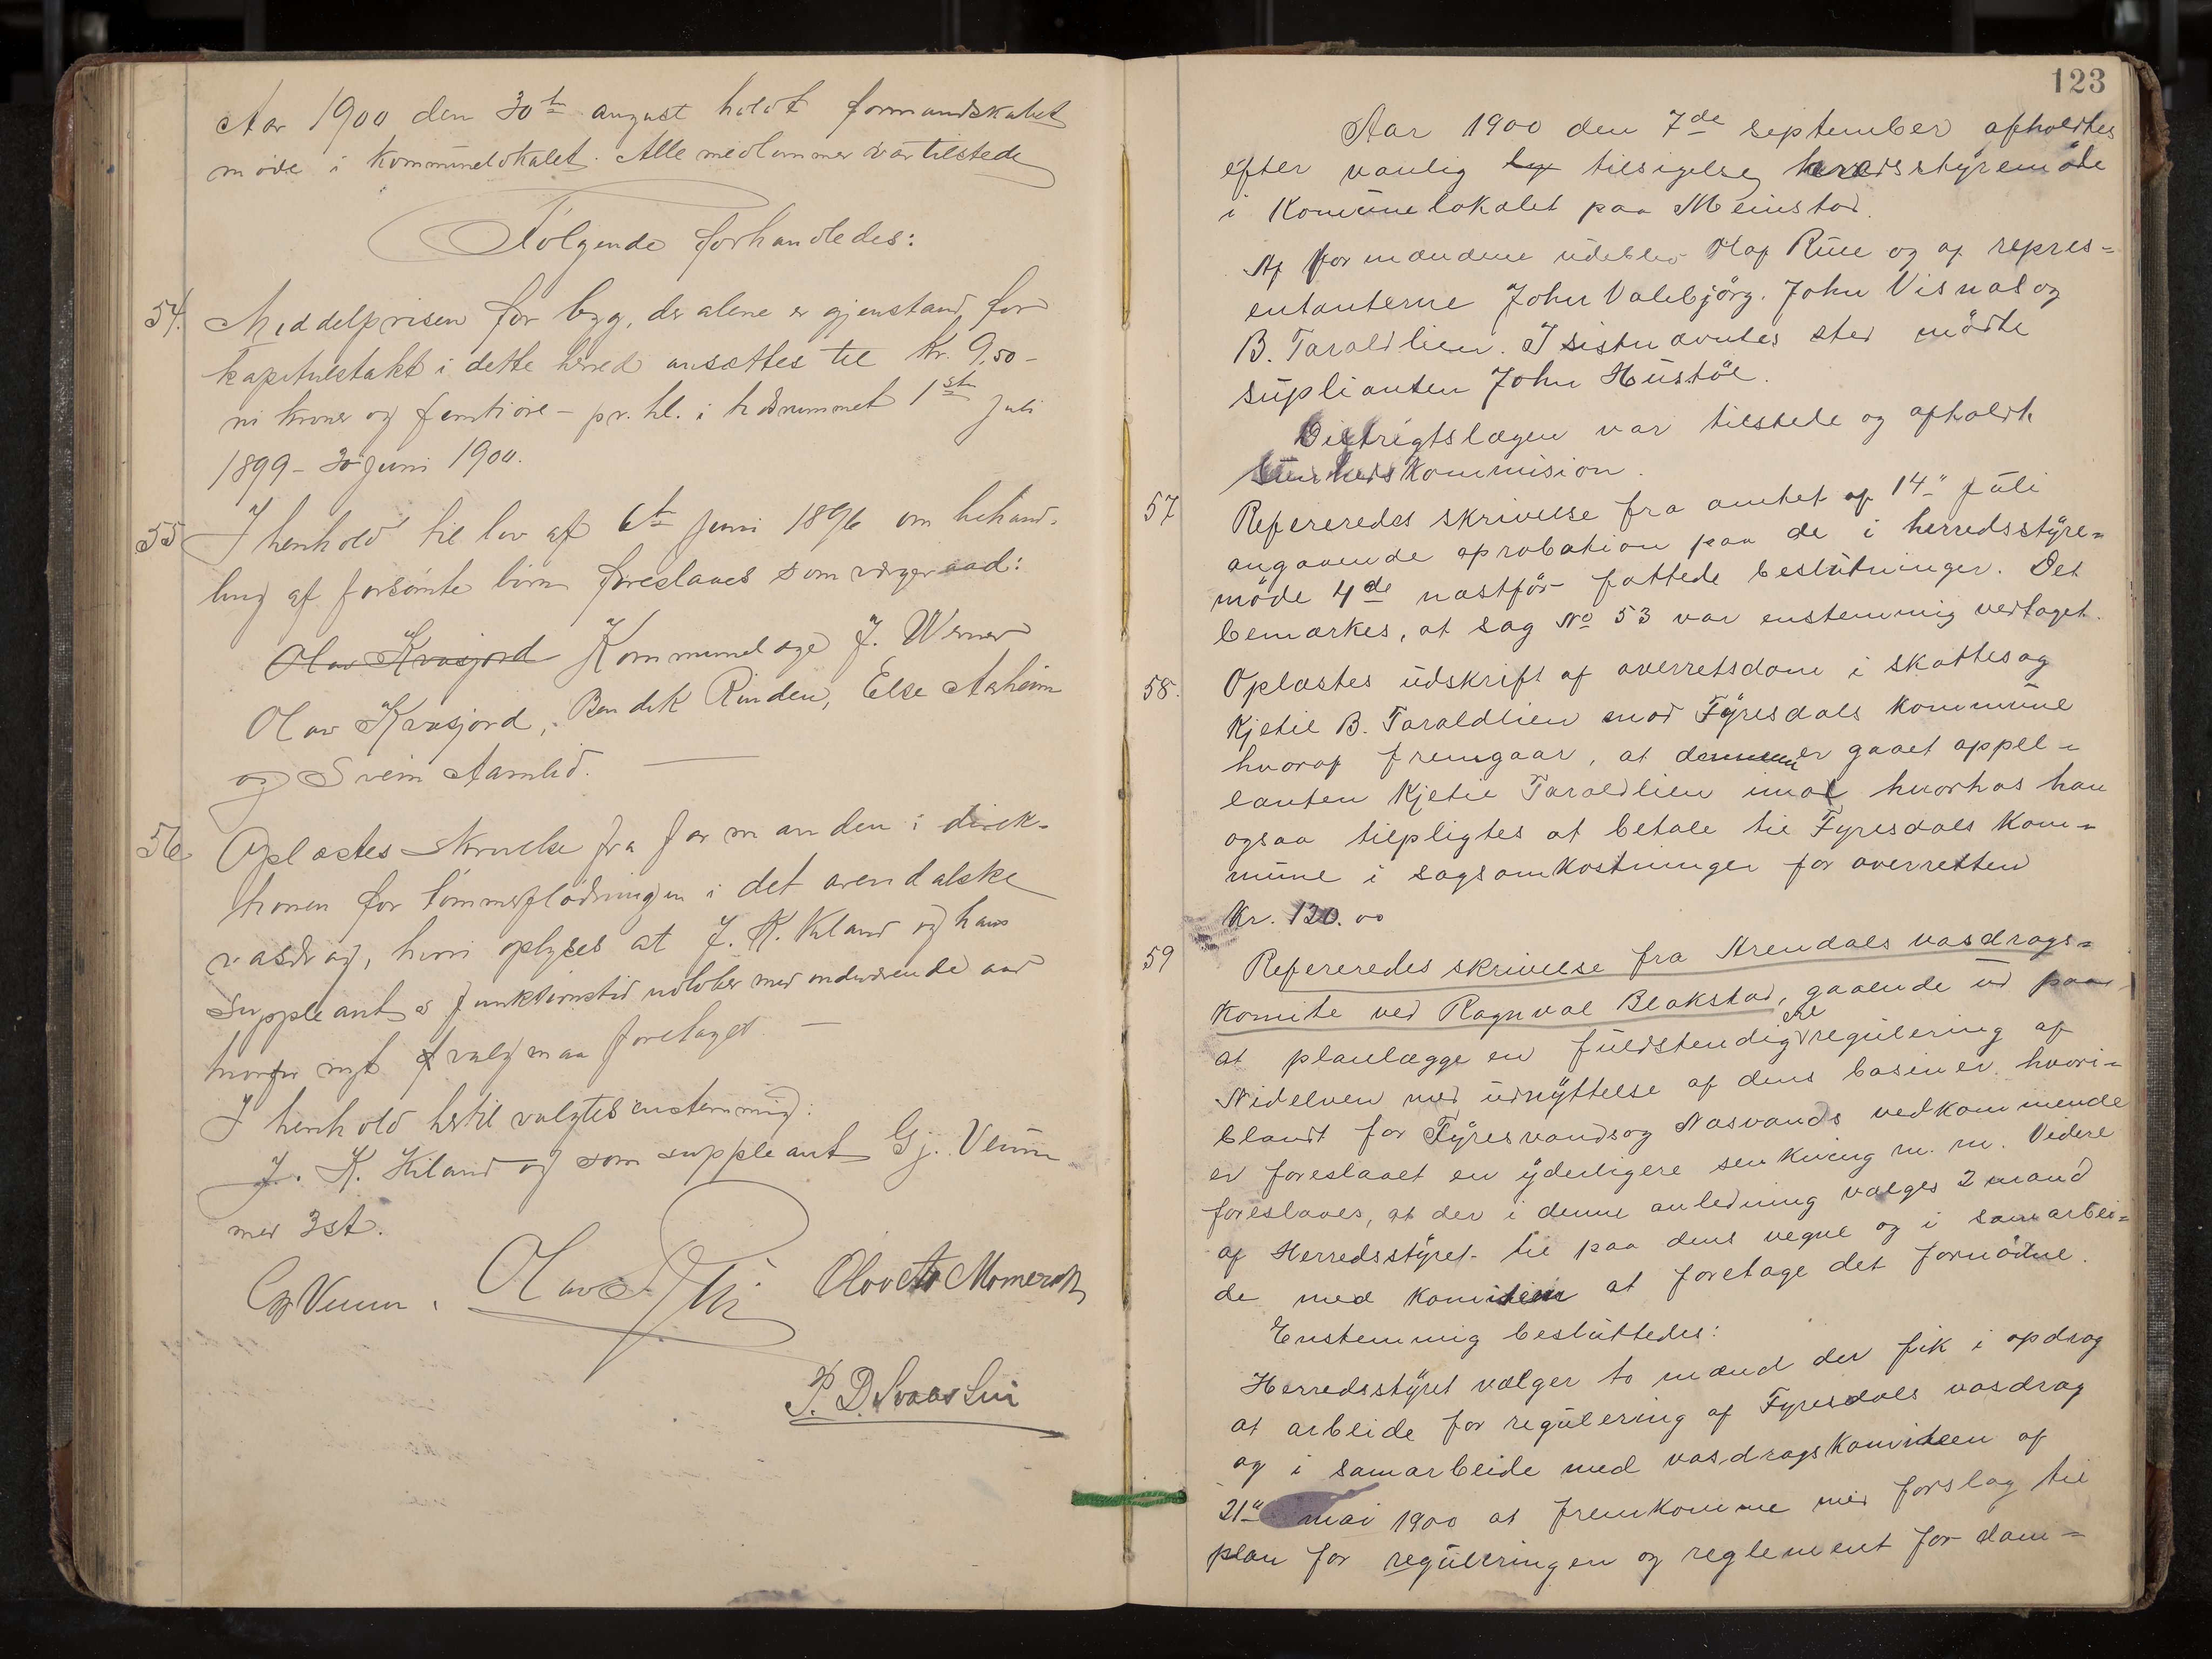 Aar 1900 den 30te august holdt formandskabet
møde i kommunelokalet. Alle medlemmer var tilstede
Følgende forhandledes:
54. Middelprisen for byg, der alene er gjenstand for
kapitelstakt i dette herred ansættes til Kr. 9,50 –
ni kroner og femti øre – pr. hl. i tidsrummet 1ste juli
1899 – 30 juni 1900.
55 I henhold til lov af 6te juni 1896 om behand-
ling af forsømte børn foreslaaes som vergeraad:
Olav Kvasjord Kommunelæge J. Werner
Olav Kvasjord, Bendik Rinden, Else Aasheim
og Svein Aamlid.
56 Oplæstes skrivelse fra formanden i direk-
tionen for tømmerflødningen i det arendalske
vasdrag, hvori oplyses at J. K. Kiland og hans
suppleants funktionstid udløber med indeværende aar
hvorfor nyt valg maa foretages –
I henhold hertil valgtes enstemmig:
J. K. Kiland og som suppleant Gj. Veum
med 3 st.
Gj Veum. Olav Olav Momerak
P. D. Svaaslii
123
Aar 1900 den 7de september afholdtes
efter vanlig tilsigelse herredsstyremöde
i Komunelokalet paa Meinstad.
Af formændene udeblev Olaf Rue og af repres=
entanterne John Valebjörg. John Visnas og
B. Taraldlien. I sistnævntes sted mödte
suplianten John Hustöl.
Distrigtslægen var tilstede og afholdt
Sundheds Kommision.
57 Refereredes skrivelse fra amtet af 14" juli
angaaende aprobation paa de i herredsstyre=
möde 4de næstför fattede beslutninger. Det
bemærkes, at sag No 53 var enstemmig vedtaget.
58. Oplæstes udskrift af overretsdom i skattesag
Kjetil B. Taraldlien mod Fyresdals kommune
hvoraf fremgaar, at denne er gaaet appel=
lanten Kjetil Taraldlien imod hvorhos han
ogsaa tilpligtes at betale til Fyresdals Kom=
mune i sagsomkostninger for overretten
Kr. 120.00
59 Refereredes skrivelse fra Arendals vasdrags=
komite ved Ragnval Blakstad, gaaende ud paa
at planlægge en fuldstendigere regulering af
Nidelven med udnyttelse af dens basiner, hvori=
blandt for Fyresvands og Næsvands vedkommende
er foreslaaet en yderligere senkning m. m. Videre
foreslaaes, at der i denne anledning vælges 2 mand
af Herredsstyret til paa dens vegne og i samarbei=
de med komiteen at foretage det fornödne.
Enstemmig besluttedes:
Herredsstyret vælger to mænd der fik i opdrag
at arbeide for regulering af Fyresdals vasdrag
og i samarbeide med vasdragskomiteen af
21" mai 1900 at fremkomme med forslag til
plan for reguleringen og reglement for dam=